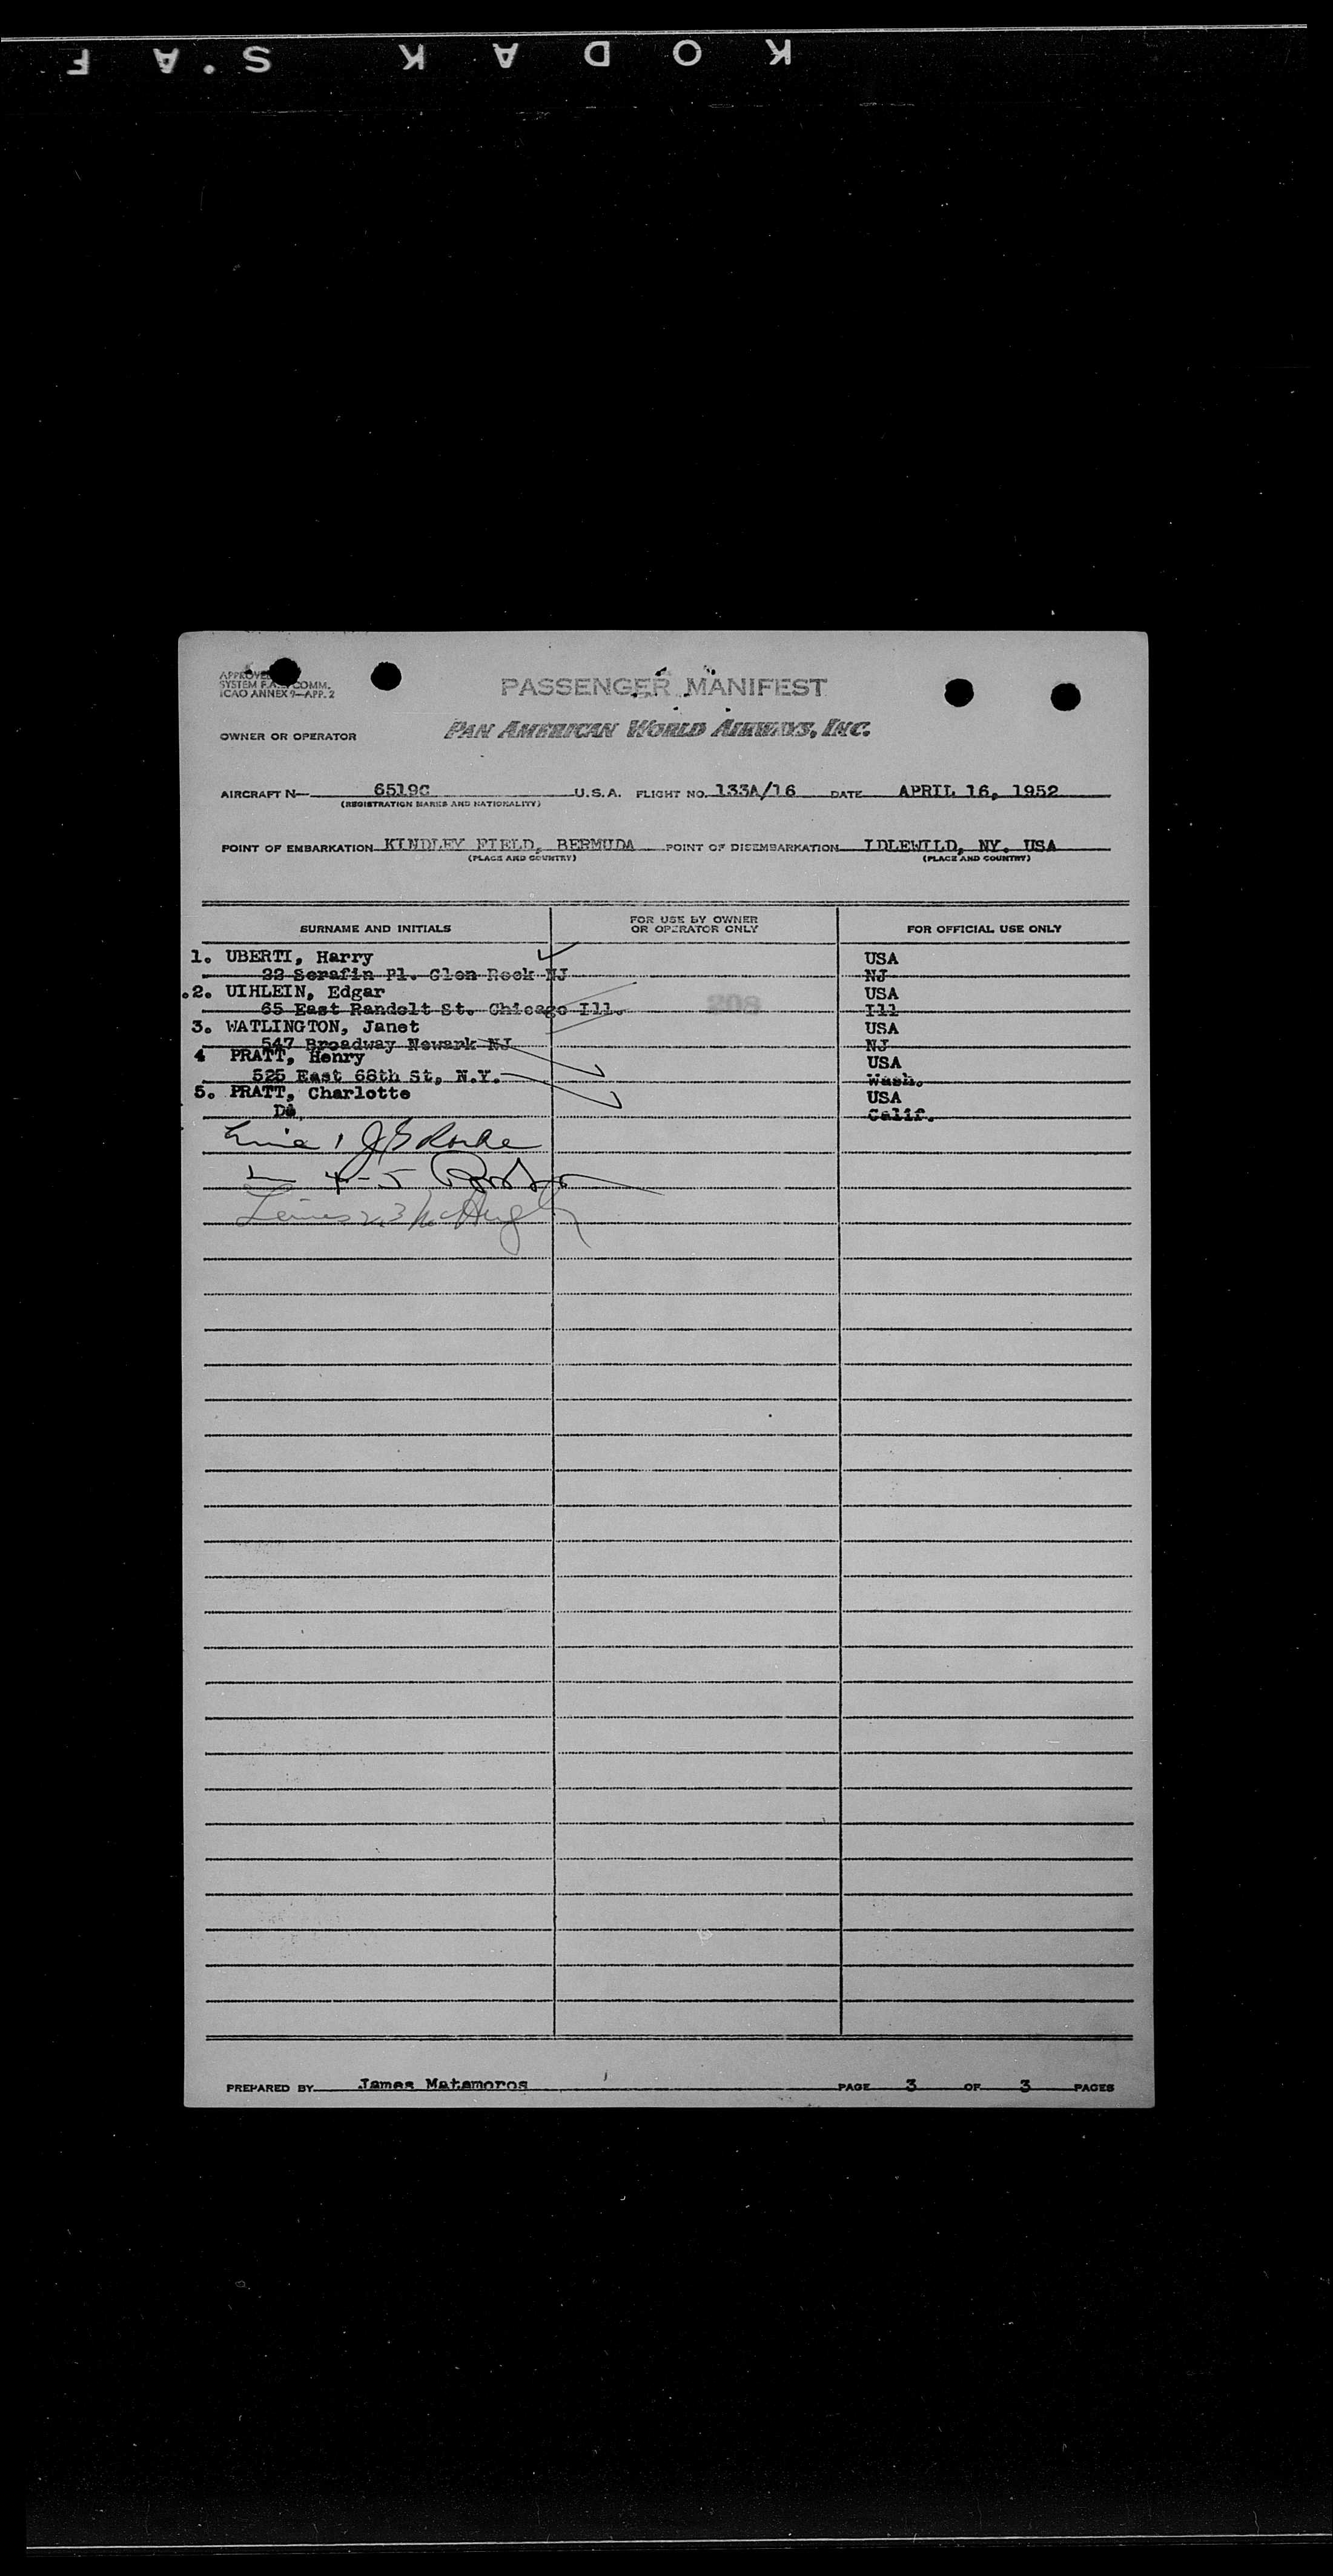 KODAK S.AF
APPROVED
SYSTEM F.A.L. COMM.
ICAO ANNEX 9—APP. 2
PASSENGER MANIFEST
OWNER OR OPERATOR PAN AMERICAN WORLD AIRWAYS, INC.
AIRCRAFT N— 6519C U.S.A. FLIGHT NO. 133A/16 DATE APRIL 16, 1952
(REGISTRATION MARKS AND NATIONALITY)
POINT OF EMBARKATION KINDLEY FIELD, BERMUDA POINT OF DISEMBARKATION IDLEWILD, NY. USA
(PLACE AND COUNTRY) (PLACE AND COUNTRY)
SURNAME AND INITIALS FOR USE BY OWNER OR OPERATOR ONLY FOR OFFICIAL USE ONLY
1. UBERTI, Harry USA
22 Serafin Pl. Glen Rock NJ NJ
.2. UIHLEIN, Edgar USA
65 East Randolt St. Chicago Ill. 208 Ill
3. WATLINGTON, Janet USA
547 Broadway Newark NJ NJ
4 PRATT, Henry USA
525 East 68th St, N.Y. Wash.
5. PRATT, Charlotte USA
Do, Calif.
Line 1
4-5
Lines 2,3 McHugh
PREPARED BY James Matamoros PAGE 3 OF 3 PAGES